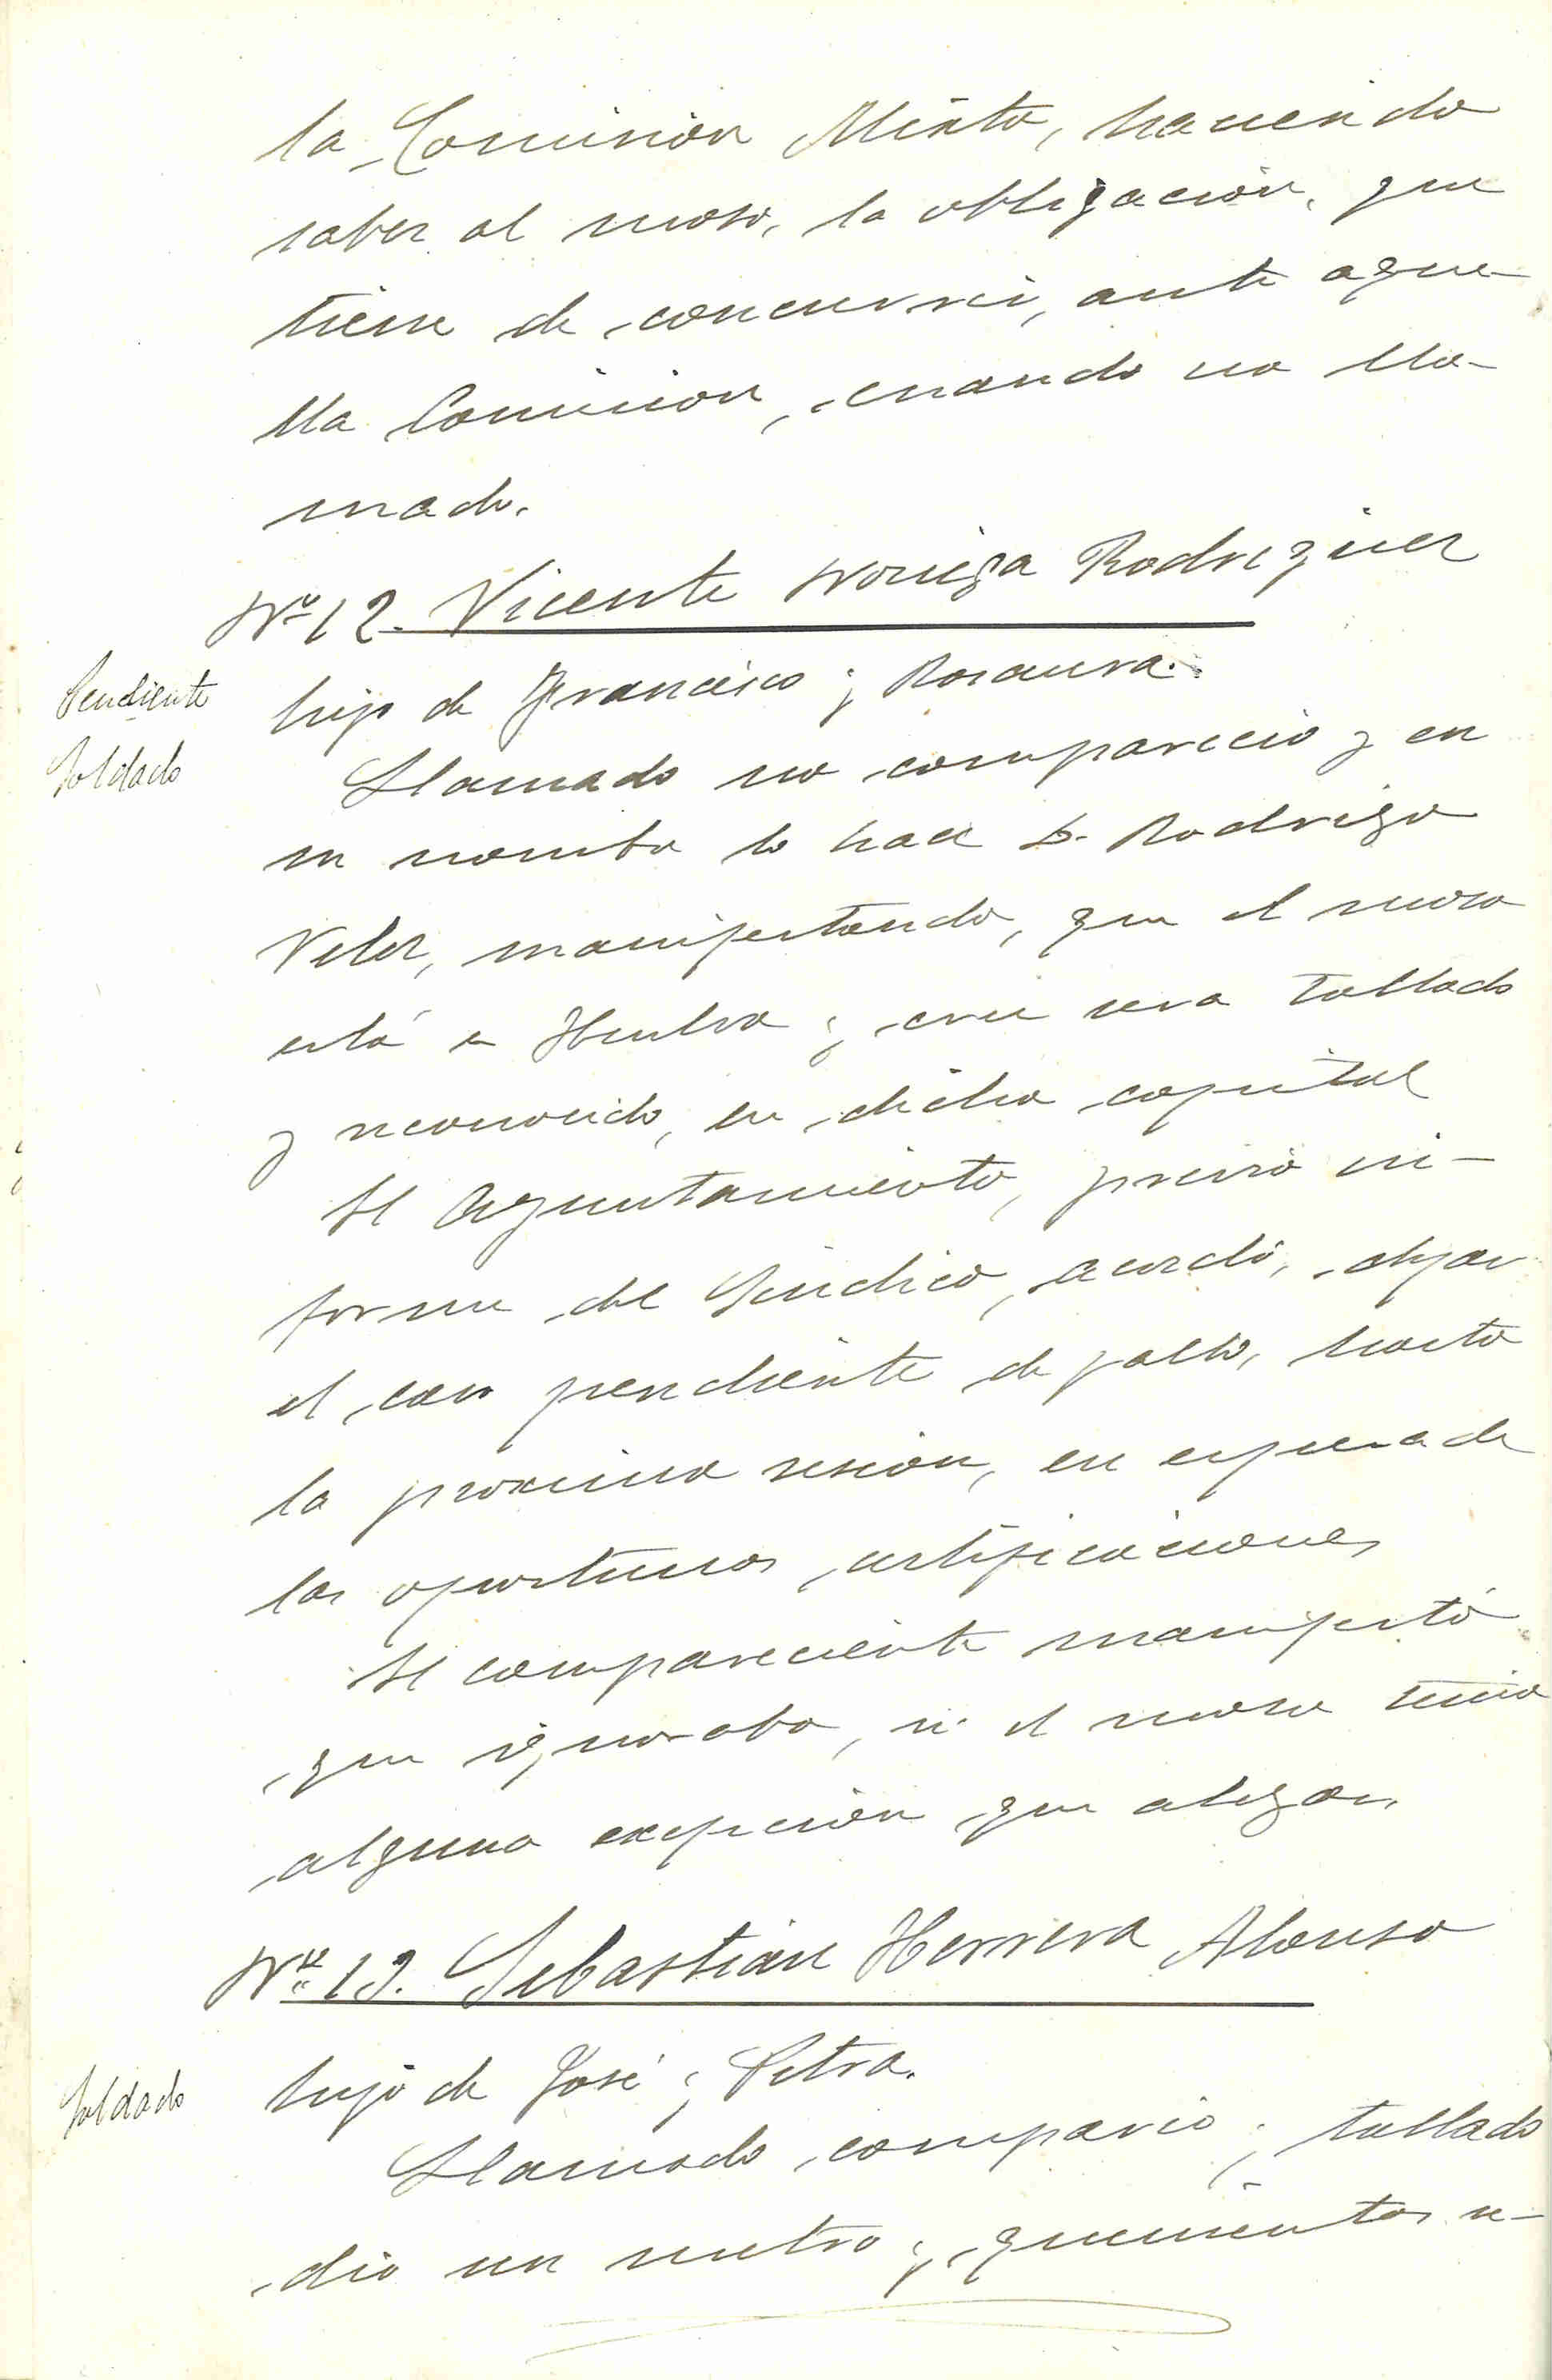 la Comision Mixta, haciendo
saber al moso, la obligación, que
tiene de concurrir, ante aque-
lla Comision, cuando sea lla-
mado.
Nº 12. Vicente Noriega Rodriguez
Pendiente
Soldado
hijo de Francisco y Rosaura.
Llamado no comparecio y en
su nombre lo hace D. Rodrigo
Velez, manifestando, que el moso
está en Huelva y cree sera tallado
y reconocido, en dicha capital
El Ayuntamiento, previo in-
forme del Sindico, acordó, dejar
el caso pendiente de fallo, hasta
la proxima sesion, en espera de
las oportunas certificaciones
El compareciente manifestó
que ignoraba, si el moso tenia
alguna excepcion que alegar.
Nº 13. Sebastian Herrera Alonso
Soldado
hijo de José y Petra.
Llamado, comparecio y tallado
dio un metro y quinientos se-